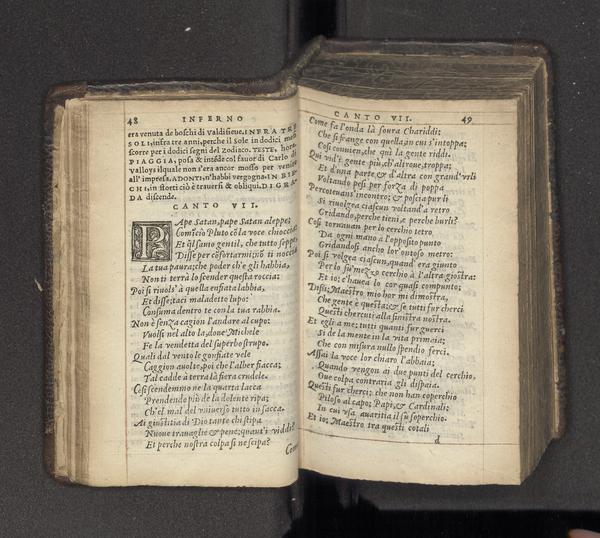 48 INFERNO
era venuta de boschi di valdisieue. INFRA TRE
SOLI, infra tre anni, perche il sole in dodici mesi
scorre per i dodici segni del Zodiaco. TESTE, hora
PIAGGIA, posa & inside col fauor di Carlo di
valloys il quale non s'era ancor mosso per venire
all'impresa. ADONTI, n'habbi vergogna. IN BIE
CHI, in storti ciò è trauersi & obliqui. DI GRA
DA discende.
CANTO VII.
PApe Satan, pape Satan aleppe;
Comīciò Pluto cō la voce chioccia:
Et q̃l sauio gentil, che tutto seppe,
Disse per cōfortarmi; nō ti noccia
La tua paura; che poder ch'e gli habbia,
Non ti terrà lo scender questa roccia:
Poi si riuols' à quella enfiata labbia,
Et disse; taci maladetto lupo:
Consuma dentro te con la tua rabbia.
Non è senza cagion l'andare al cupo:
Vuolsi nel alto la, doue Michele
Fe la vendetta del superbo strupo.
Quali dal vento le gonfiate vele
Caggion auolte, poi che l'alber fiacca;
Tal cadde à terra la fiera crudele.
Cosi scendemmo ne la quarta lacca
Prendendo più de la dolente ripa;
Ch'el mal del vniuerso tutto insacca.
Ai giustitia di Dio tante chi stipa
Nuoue trauaglie & pene; quant'i viddi?
Et perche nostra colpa si ne scipa?
Come
CANTO VII. 49
Come fa l'onda là soura Chariddi;
Che si frange con quella, in cui s'intoppa;
Cosi conuien, che quà la gente riddi.
Qui vid'i gente più, ch'altroue, troppa;
Et d'una parte & d'altra con grand'vrli
Voltando pesi per forza di poppa
Percoteuans'incontro; & poscia pur li
Si riuolgea ciascun voltand'a retro
Gridando, perche tieni, e perche burli?
Cosi tornauan per lo cerchio tetro
Da ogni mano à l'opposito punto
Gridandosi ancho lor'ontoso metro:
Poi si volgea ciascun, quand'era giunto
Per lo su' mezo cerchio à l'altra giostra:
Et io; c'hauea lo cor quasi compunto;
Dissi; Maestro mio hor mi dimostra,
Che gente è questa; & se tutti fur cherci
Questi chercuti alla sinistra nostra.
Et egli a me; tutti quanti fur guerci
Si de la mente in la vita primaia;
Che con misura nullo spendio ferci.
Assai la voce lor chiaro l'abbaia;
Quando vengon ai due punti del cerchio,
Oue colpa contraria gli dispaia.
Questi fur cherci; che non han coperchio
Piloso al capo; Papi, & Cardinali;
In cui vsa auaritia il su soperchio.
Et io; Maestro tra questi cotali
d